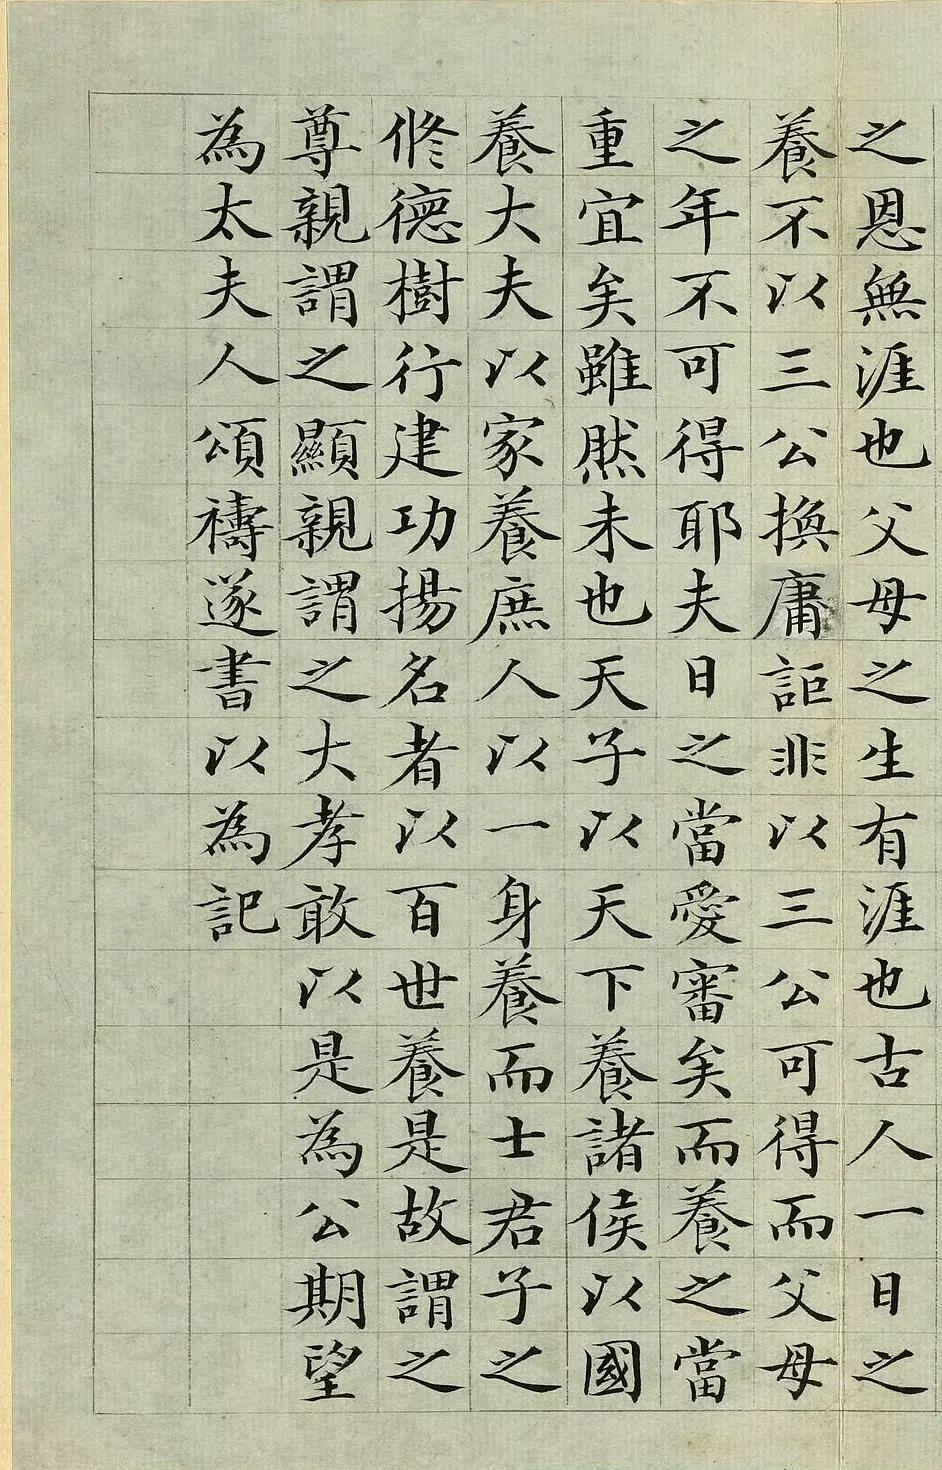 之恩無涯也父母之生有涯也古人一日之
養不以三公換庸詎非以三公可得而父母
之年不可得耶夫日之當愛審矣而養之當
重宜矣雖然未也天子以天下養諸侯以國
養大夫以家養庶人以一身養而士君子之
修德樹行建功揚名者以百世養是故謂之
尊親謂之顯親謂之大孝敢以是為公期望
為太夫人頌禱遂書以為記